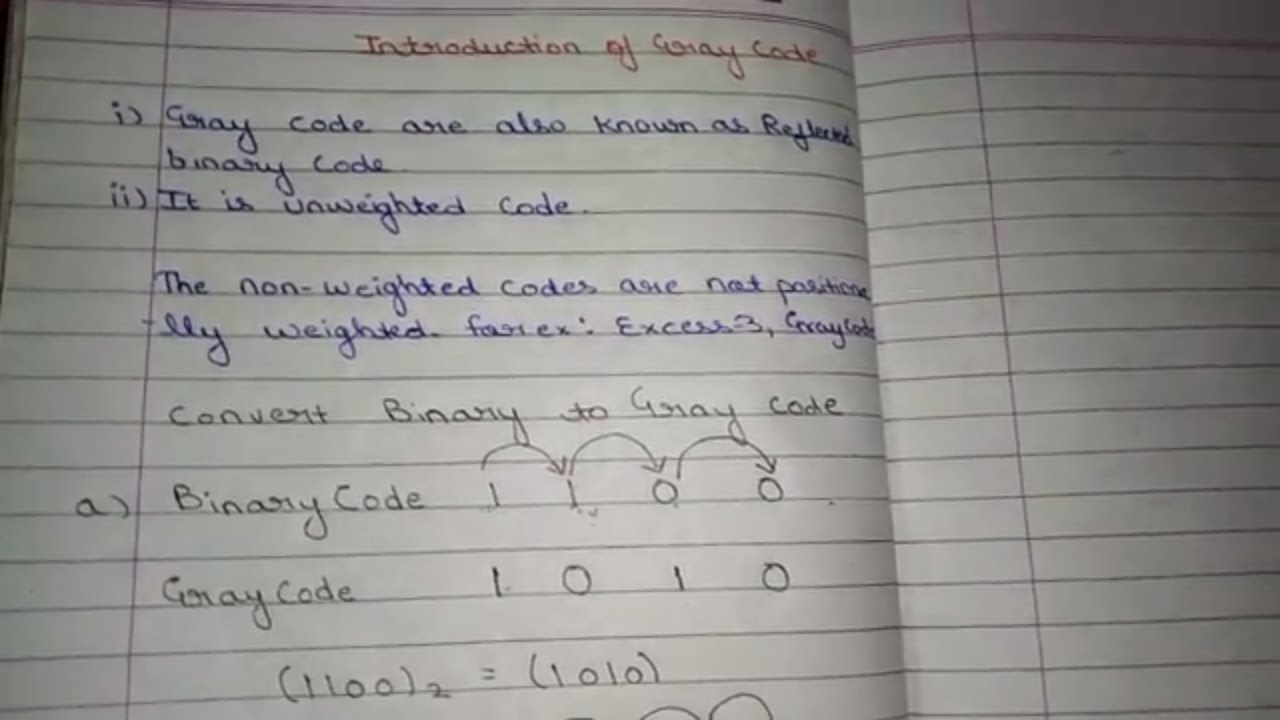 Introduction of Gray Code
i) Gray code are also known as Reflected
binary code.
ii) It is unweighted code.
The non-weighted codes are not positiona
-lly weighted. for ex: Excess-3, Gray Code
Convert Binary to Gray code
a) Binary Code 1 1 0 0
Gray Code 1 0 1 0
(1100)2 = (1010)